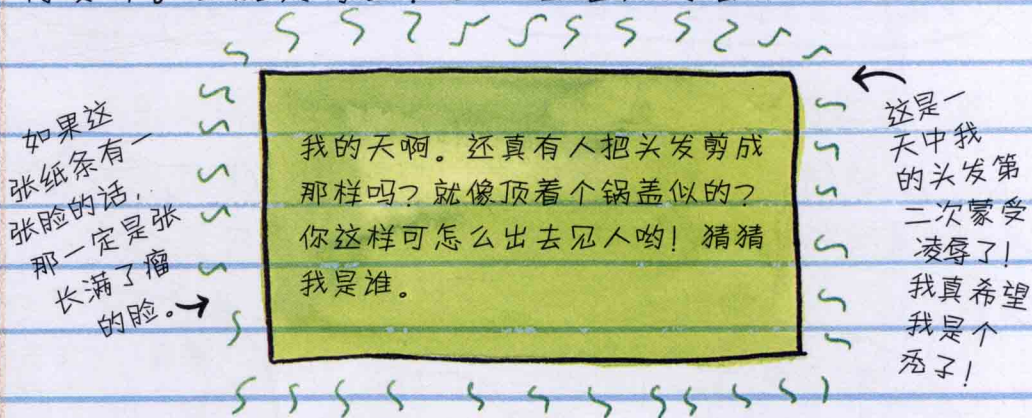 如果这
张纸条有一
张脸的话，
那一定是张
长满了瘤
的脸。
我的天啊。还真有人把头发剪成
那样吗？就像顶着个锅盖似的？
你这样可怎么出去见人哟！猜猜
我是谁。
这是一
天中我
的头发第
二次蒙受
凌辱了！
我真希望
我是个
秃子！